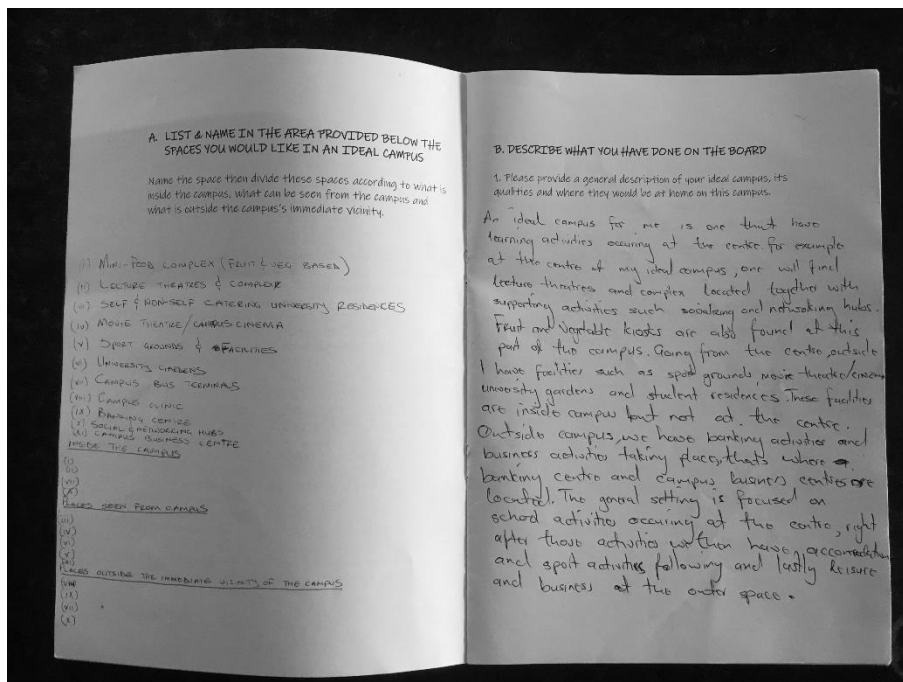 A. LIST & NAME IN THE AREA PROVIDED BELOW THE
SPACES YOU WOULD LIKE IN AN IDEAL CAMPUS
Name the space then divide these spaces according to what is
inside the campus, what can be seen from the campus and
what is outside the campus's immediate vicinity.
(i) MINI-FOOD COMPLEX (FRUIT & VEG BASED)
(ii) LECTURE THEATRES & COMPLEX
(iii) SELF & NON-SELF CATERING UNIVERSITY RESIDENCES
(iv) MOVIE THEATRE/CAMPUS CINEMA
(v) SPORT GROUNDS & FACILITIES
(vi) UNIVERSITY GARDENS
(vii) CAMPUS BUS TERMINALS
(viii) CAMPUS CLINIC
(ix) BANKING CENTRE
(x) SOCIAL & NETWORKING HUBS
(xi) CAMPUS BUSINESS CENTRE
INSIDE THE CAMPUS
(i)
(ii)
(vii)
(x)
PLACES SEEN FROM CAMPUS
(iii)
(iv)
(v)
PLACES OUTSIDE THE IMMEDIATE VICINITY OF THE CAMPUS
(viii)
(ix)
(vii)
(x)
B. DESCRIBE WHAT YOU HAVE DONE ON THE BOARD
1. Please provide a general description of your ideal campus, its
qualities and where they would be at home on this campus.
An ideal campus for me is one that have
learning activities occuring at the centre. for example
at the centre of my ideal campus, one will find
lecture theatres and complex located together with
supporting activities such socialising and netwoking hubs.
Fruit and Vegetable kiosks are also found at this
part of the campus. Going from the centre, outside
I have facilities such as sport grounds, movie theatre/cinema
university gardens and student residences. These facilities
are inside campus but not at the centre.
Outside campus, we have banking activities and
business activities taking place, thats where
banking centre and campus business centres are
located. The general setting is focused on
school activities occuring at the centre, right
after those activities we then have accomodation
and sport activities following and lastly leisure
and business at the outer space.